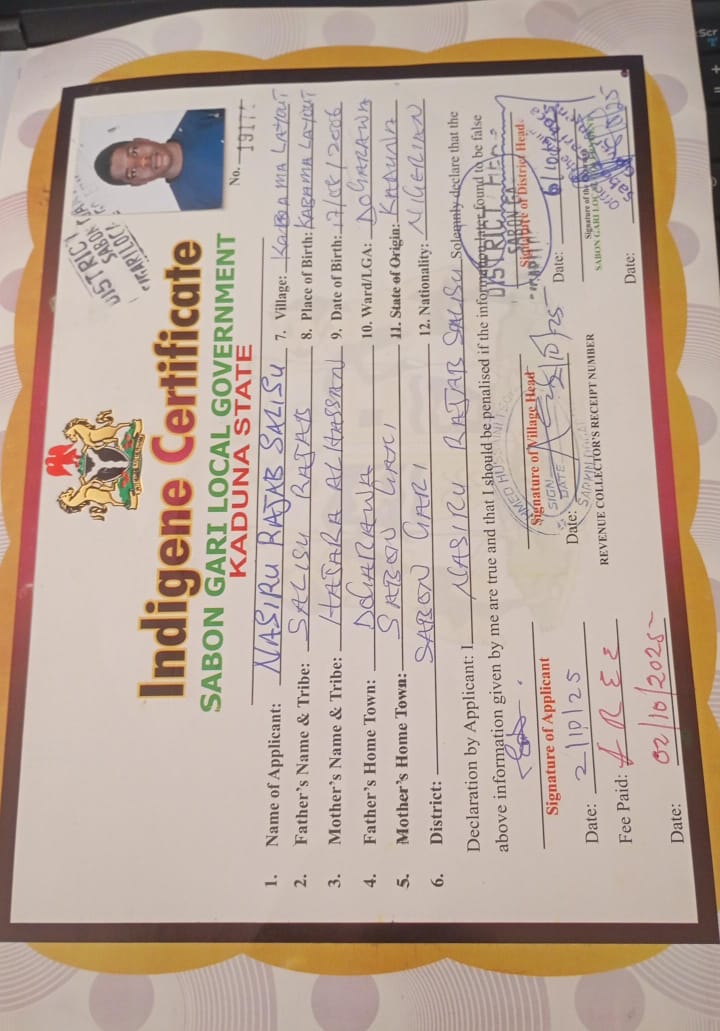 Indigene Certificate
SABON GARI LOCAL GOVERNMENT
KADUNA STATE
No. 1917
1. Name of Applicant: NASIRU RAJAB SALISU
2. Father's Name & Tribe: SALISU RAJAB
3. Mother's Name & Tribe: HAJARA ALHASSAN
4. Father's Home Town: DOGARAWA
5. Mother's Home Town: SABON GARI
6. District: SABON GARI
7. Village: LAYOUT
8. Place of Birth: KABAMA LAYOUT
9. Date of Birth: 17/05/2006
10. Ward/LGA: DOGARAWA
11. State of Origin: KADUNA
12. Nationality: NIGERIAN
Declaration by Applicant: I NASIRU RAJAB SALISU Solemnly declare that the
above information given by me are true and that I should be penalised if the information later found to be false
Signature of Applicant
Signature of Village Head
Signature of District Head
Date: 2/10/25
Date: 2/10/25
Date: 6/10/2025
Fee Paid: FREE
REVENUE COLLECTOR'S RECEIPT NUMBER
Signature of the
SABON GARI
Date: 02/10/2025
Date:
DISTRICT
SABON
SIGN
DATE
DISTRICT HEAD
SABON GA
Scr